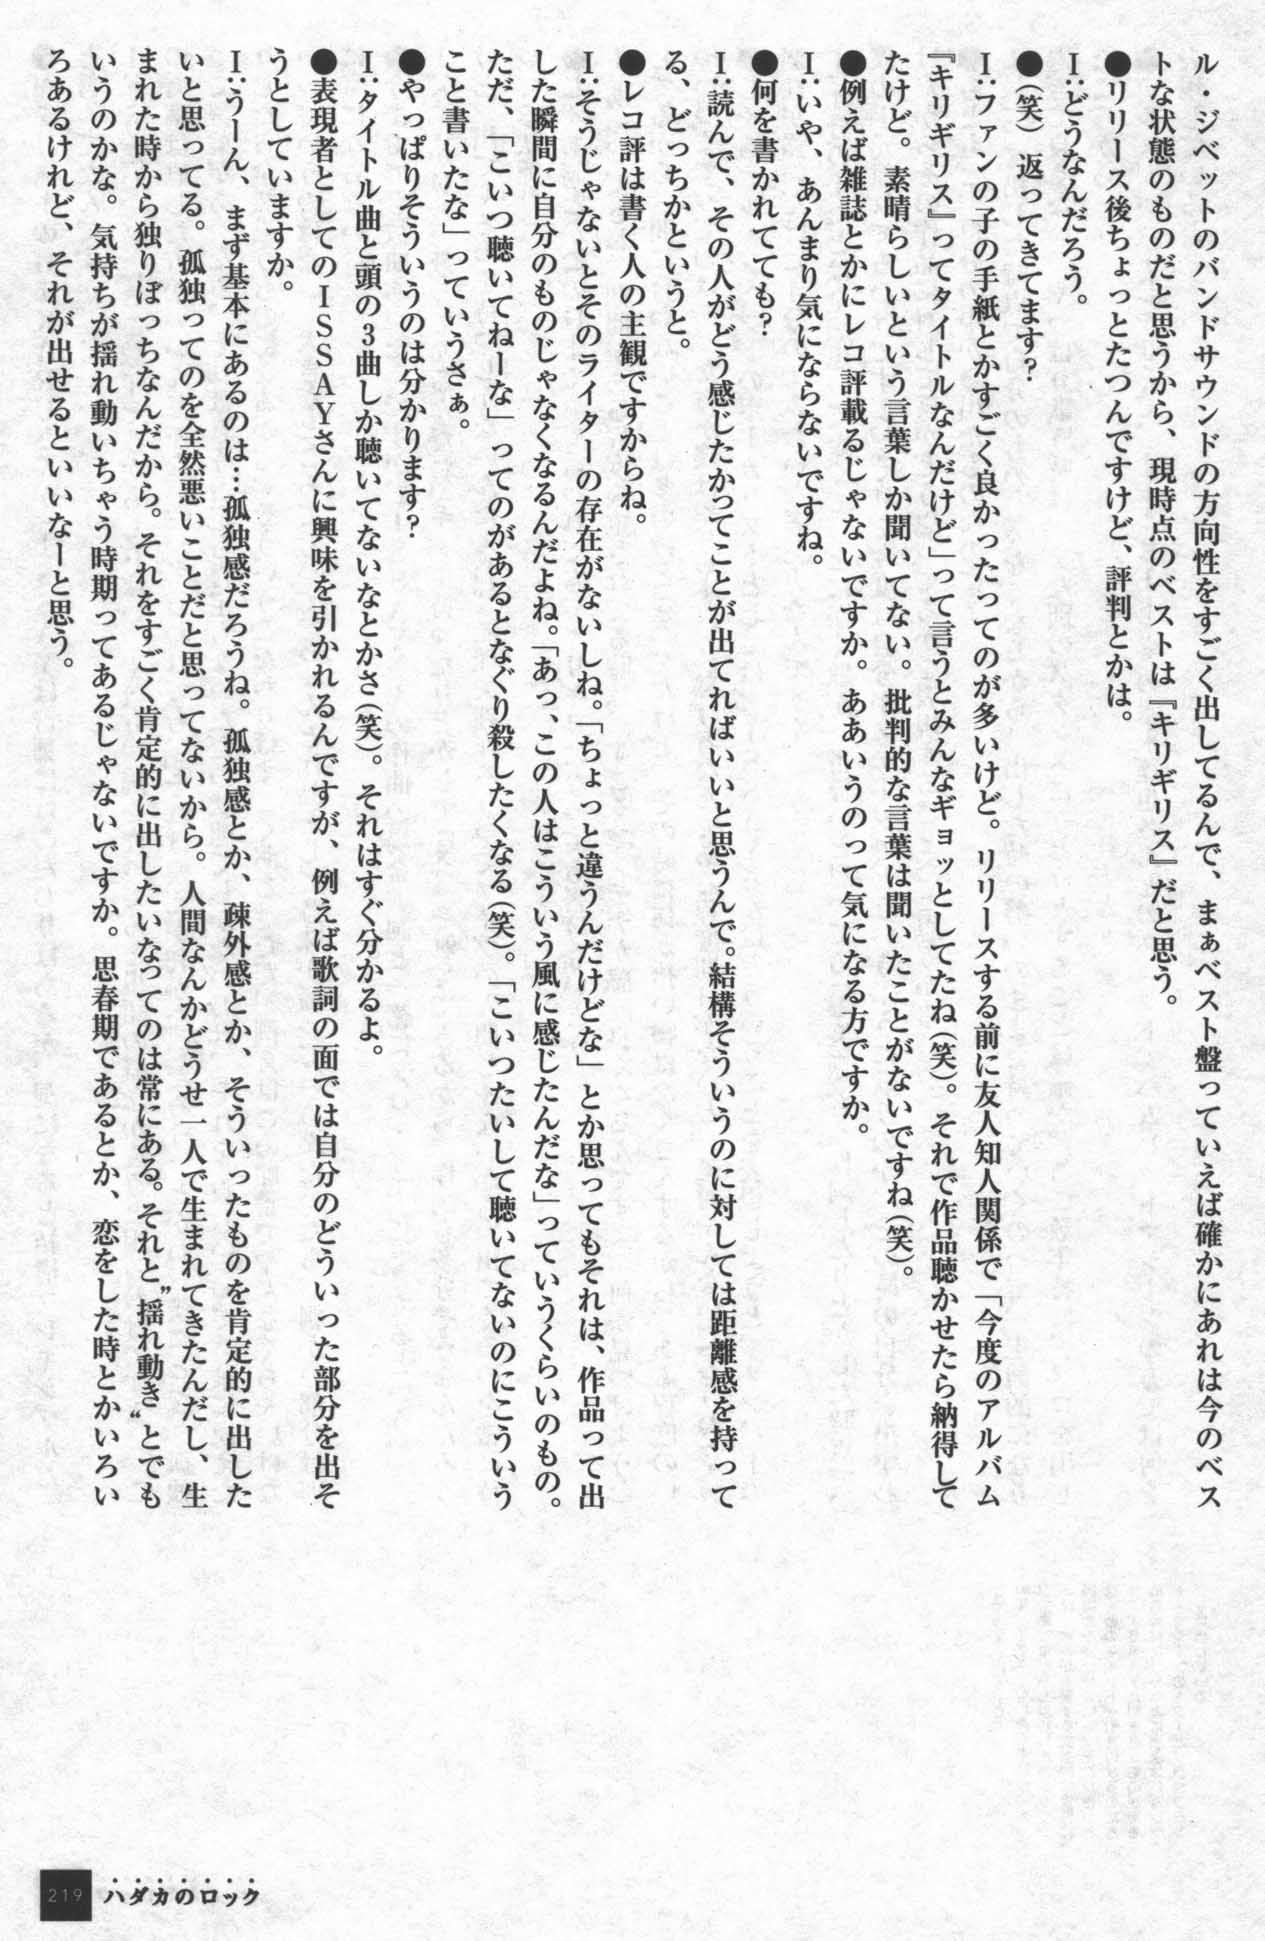 ル・ジベットのバンドサウンドの方向性をすごく出してるんで、まぁベスト盤っていえば確かにあれは今のベス
トな状態のものだと思うから、現時点のベストは『キリギリス』だと思う。
●リリース後ちょっとたつんですけど、評判とかは。
I:どうなんだろう。
●(笑) 返ってきてます?
I:ファンの子の手紙とかすごく良かったってのが多いけど。リリースする前に友人知人関係で「今度のアルバム
『キリギリス』ってタイトルなんだけど」って言うとみんなギョッとしてたね(笑)。それで作品聴かせたら納得して
たけど。素晴らしいという言葉しか聞いてない。批判的な言葉は聞いたことがないですね(笑)。
●例えば雑誌とかにレコ評載るじゃないですか。ああいうのって気になる方ですか。
I:いや、あんまり気にならないですね。
●何を書かれてても?
I:読んで、その人がどう感じたかってことが出てればいいと思うんで。結構そういうのに対しては距離感を持って
る、どっちかというと。
●レコ評は書く人の主観ですからね。
I:そうじゃないとそのライターの存在がないしね。「ちょっと違うんだけどな」とか思ってもそれは、作品って出
した瞬間に自分のものじゃなくなるんだよね。「あっ、この人はこういう風に感じたんだな」っていうくらいのもの。
ただ、「こいつ聴いてねーな」ってのがあるとなぐり殺したくなる(笑)。「こいつたいして聴いてないのにこういう
こと書いたな」っていうさぁ。
●やっぱりそういうのは分かります?
I:タイトル曲と頭の3曲しか聴いてないなとかさ(笑)。それはすぐ分かるよ。
●表現者としてのISSAYさんに興味を引かれるんですが、例えば歌詞の面では自分のどういった部分を出そ
うとしていますか。
I:うーん、まず基本にあるのは…孤独感だろうね。孤独感とか、疎外感とか、そういったものを肯定的に出した
いと思ってる。孤独ってのを全然悪いことだと思ってないから。人間なんかどうせ一人で生まれてきたんだし、生
まれた時から独りぼっちなんだから。それをすごく肯定的に出したいなってのは常にある。それと〝揺れ動き〟とでも
いうのかな。気持ちが揺れ動いちゃう時期ってあるじゃないですか。思春期であるとか、恋をした時とかいろい
ろあるけれど、それが出せるといいなーと思う。
219 ハダカのロック